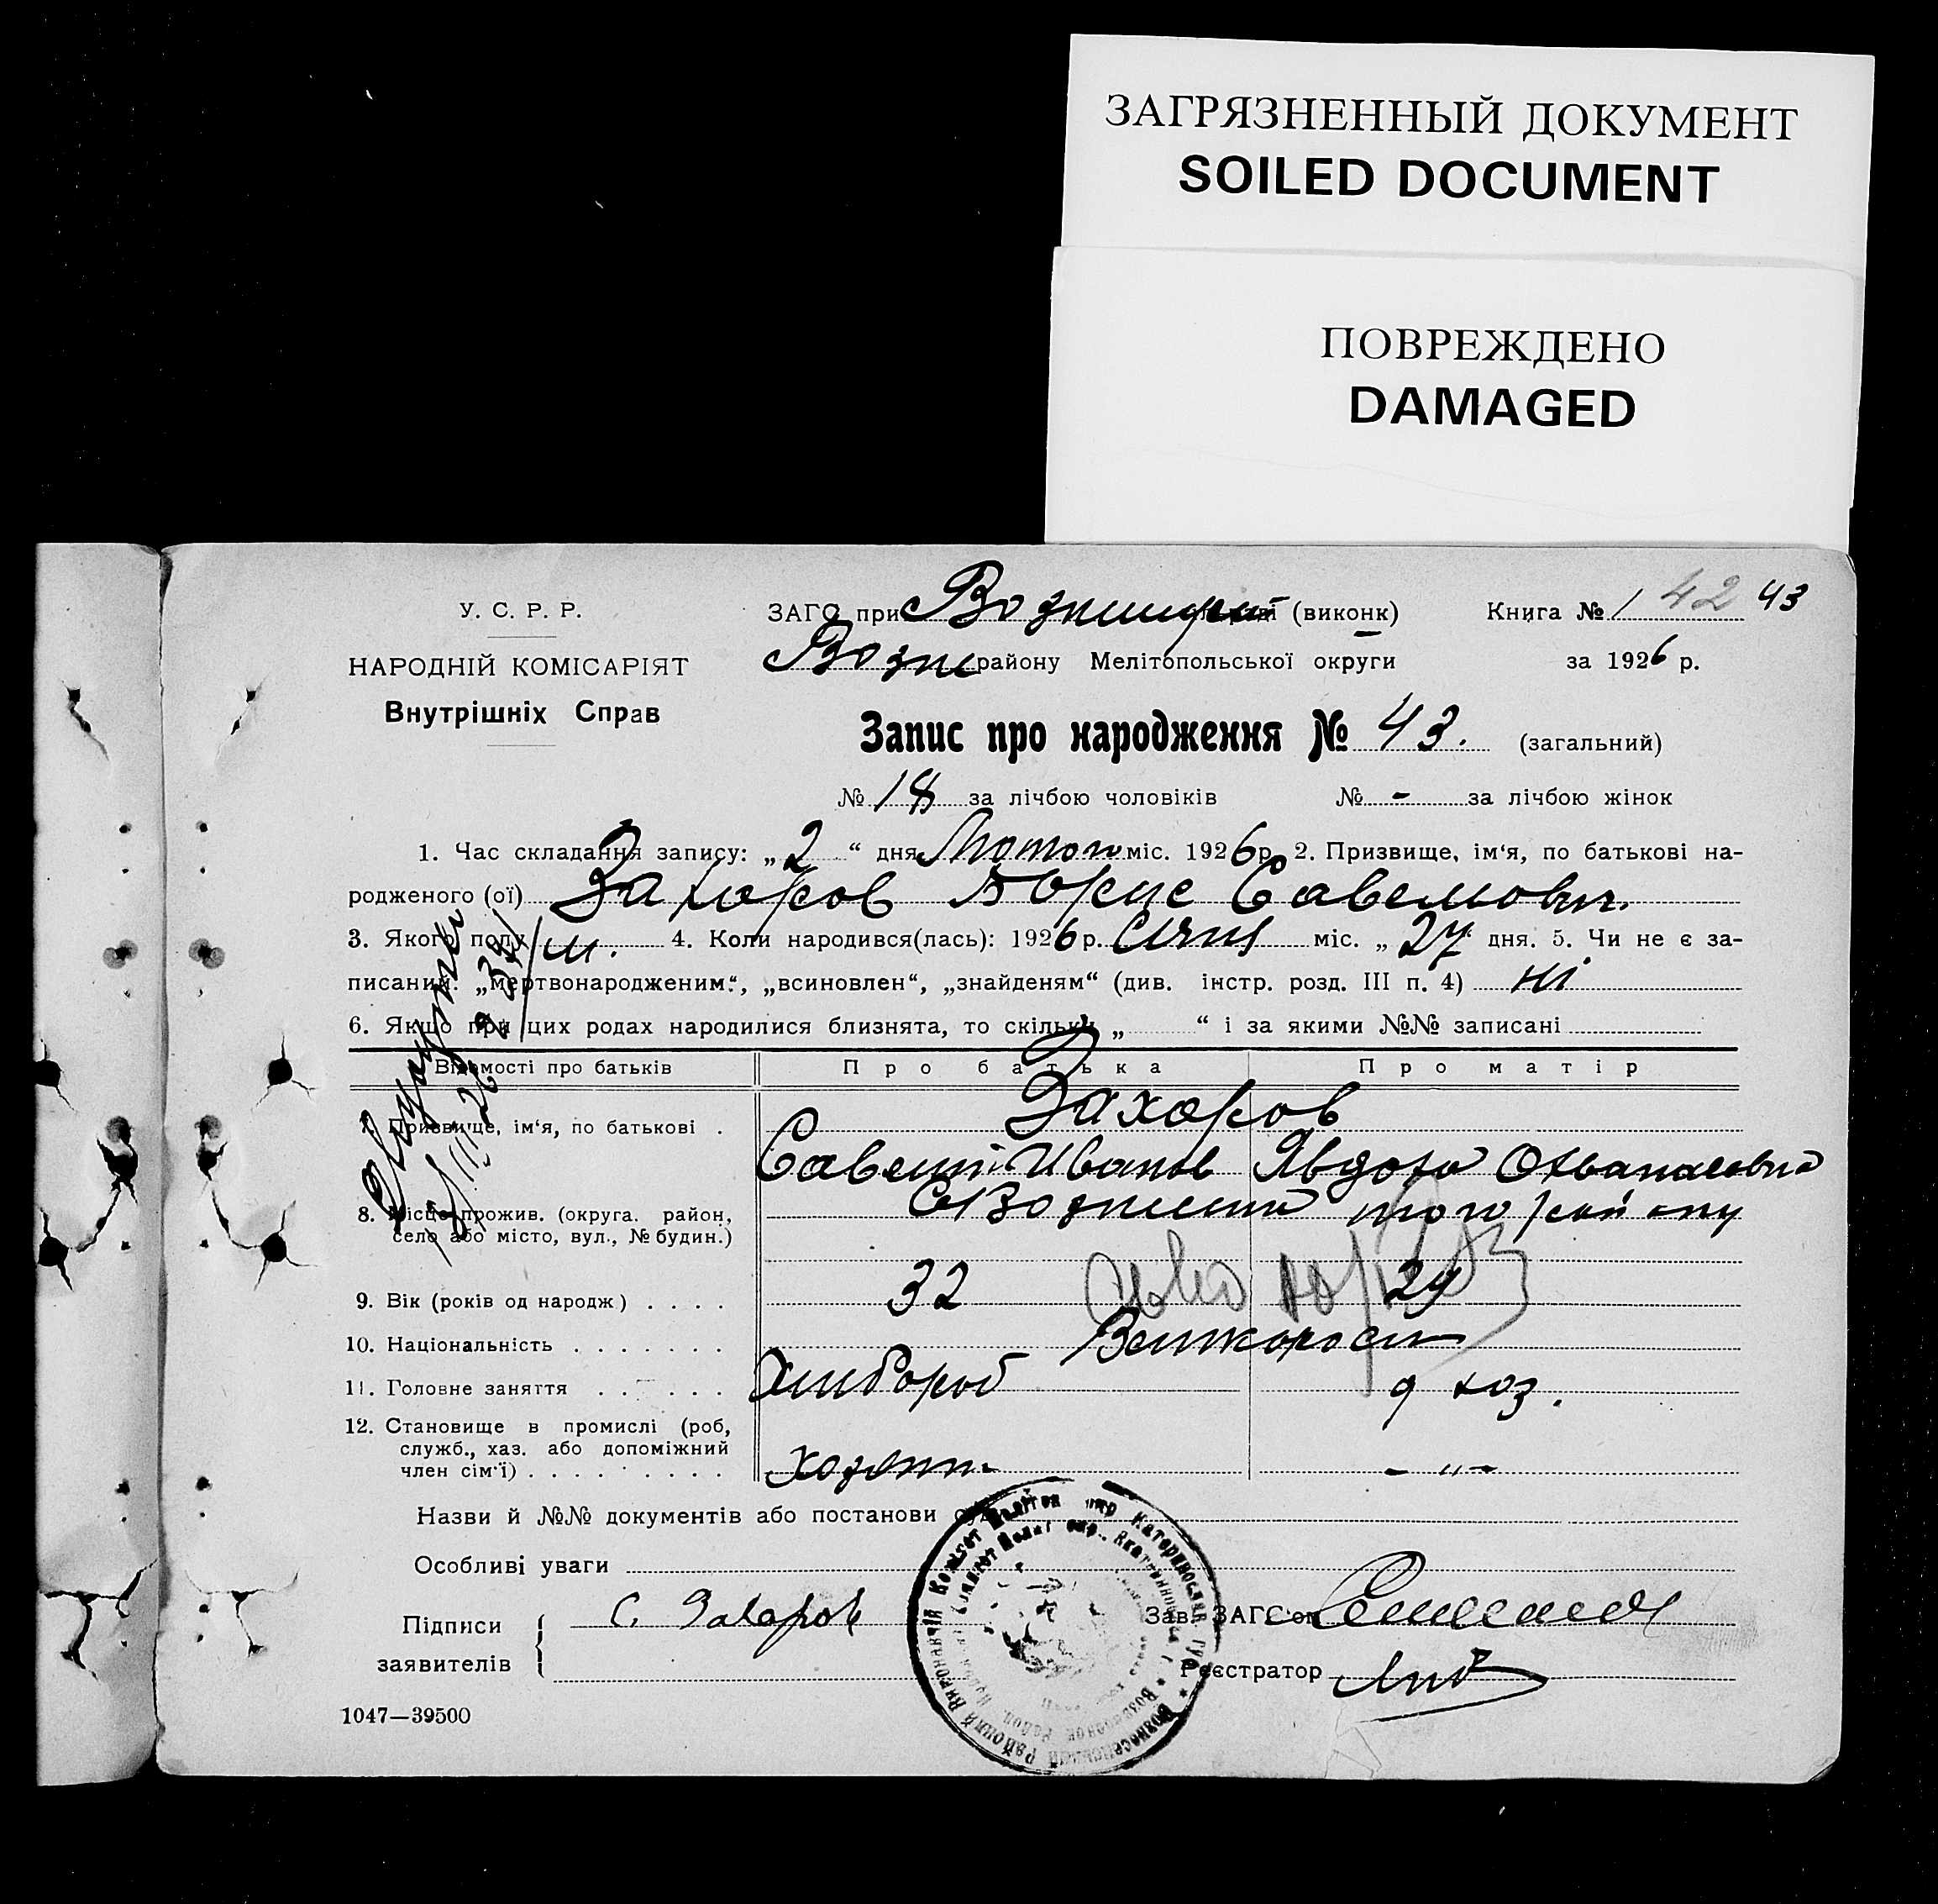 ЗАГРЯЗНЕННЫЙ ДОКУМЕНТ
SOILED DOCUMENT
ПОВРЕЖДЕНО
DAMAGED
У. С. Р. Р.
НАРОДНІЙ КОМІСАРІЯТ
Внутрішніх Справ
ЗАГС при (виконк)
Возне району Мелітопольської округи
Книга № 1 42 43
за 1926 р.
Запис про народження № 43. (загальний)
№ 18 за лічбою чоловіків № - за лічбою жінок
1. Час складання запису: „2“ дня Лютого міс. 1926 р. 2. Призвище, ім'я, по батькові на-
родженого (ої) Захаров Борис Савельович.
3. Якого полу м. 4. Коли народився(лась): 1926 р. Січня міс. „27“ дня. 5. Чи не є за-
писаний: „мертвонародженим“, „всиновлен“, „знайденям“ (див. інстр. розд. III п. 4) ні
6. Якщо при цих родах народилися близнята, то скільки „ “ і за якими №№ записані
Відомості про батьків Про батька Про матір
Захаров
7. Призвище, ім'я, по батькові .
Савелій Иванов Явдоха
8. Місце прожив. (округа. район,
село або місто, вул., № будин.)
того району
9. Вік (років од народж) . . . . 32 29
10. Національність . . . . . . . Великороси
11. Головне заняття . . . . . . Хлібороб д хоз.
12. Становище в промислі (роб,
служб., хаз. або допоміжний
член сім'ї) . . . . . . . . . хозяин - „ -
Назви й №№ документів або постанови суду
Особливі уваги
Підписи
заявителів
С. Захаров
Зав. ЗАГС'ом
Реєстратор
1047—39500